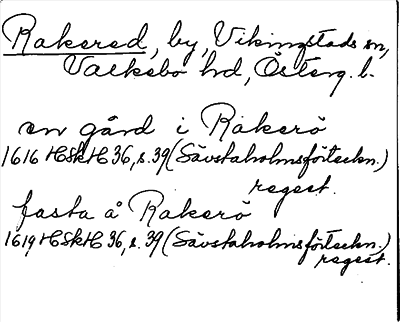 Rakered, by, Vikingstads sn,
Valkebo hd, Österg. l.
en gård i Rakerö
1616 HSkH 36, s. 39 (Sävstaholmsförteckn.)
regest.
fasta å Rakerö
1619 HSkH 36, s. 39 (Sävstaholmsförteckn.)
regest.